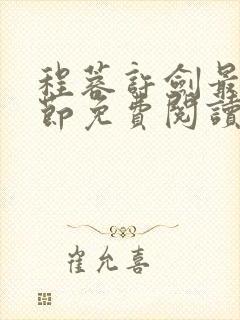 程蓉許劍最
節免費閱讀
崔允喜